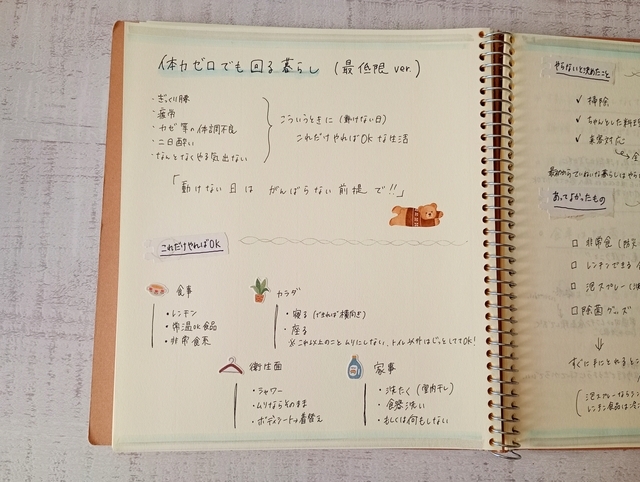 体力ゼロでも回る暮らし (最低限 ver.)
・ぎっくり腰
・疲労
・カゼ等の体調不良
・二日酔い
・なんとなくやる気出ない
こういうときに (動けない日)
これだけやればOKな生活
「動けない日は がんばらない前提で!!」
これだけやればOK
食事
・レンチン
・常温OK食品
・非常食系
カラダ
・寝る (できれば横向き)
・座る
※これ以上のことムリにしない、トイレ以外はじっとしててOK!
衛生面
・シャワー
・ムリならそのまま
・ボディシート→着替え
家事
・洗たく (室内干し)
・食器洗い
・もしくは何もしない
やらないと決めたこと
✓ 掃除
✓ ちゃんとした料理
✓ 来客対応
あってよかったもの
□ 非常食 (防災
□ レンチンできる
□ 泡スプレー
□ 除菌グッズ
⇓
すぐに手にとれるところ
(泡スプレーなら
レンチン食品は